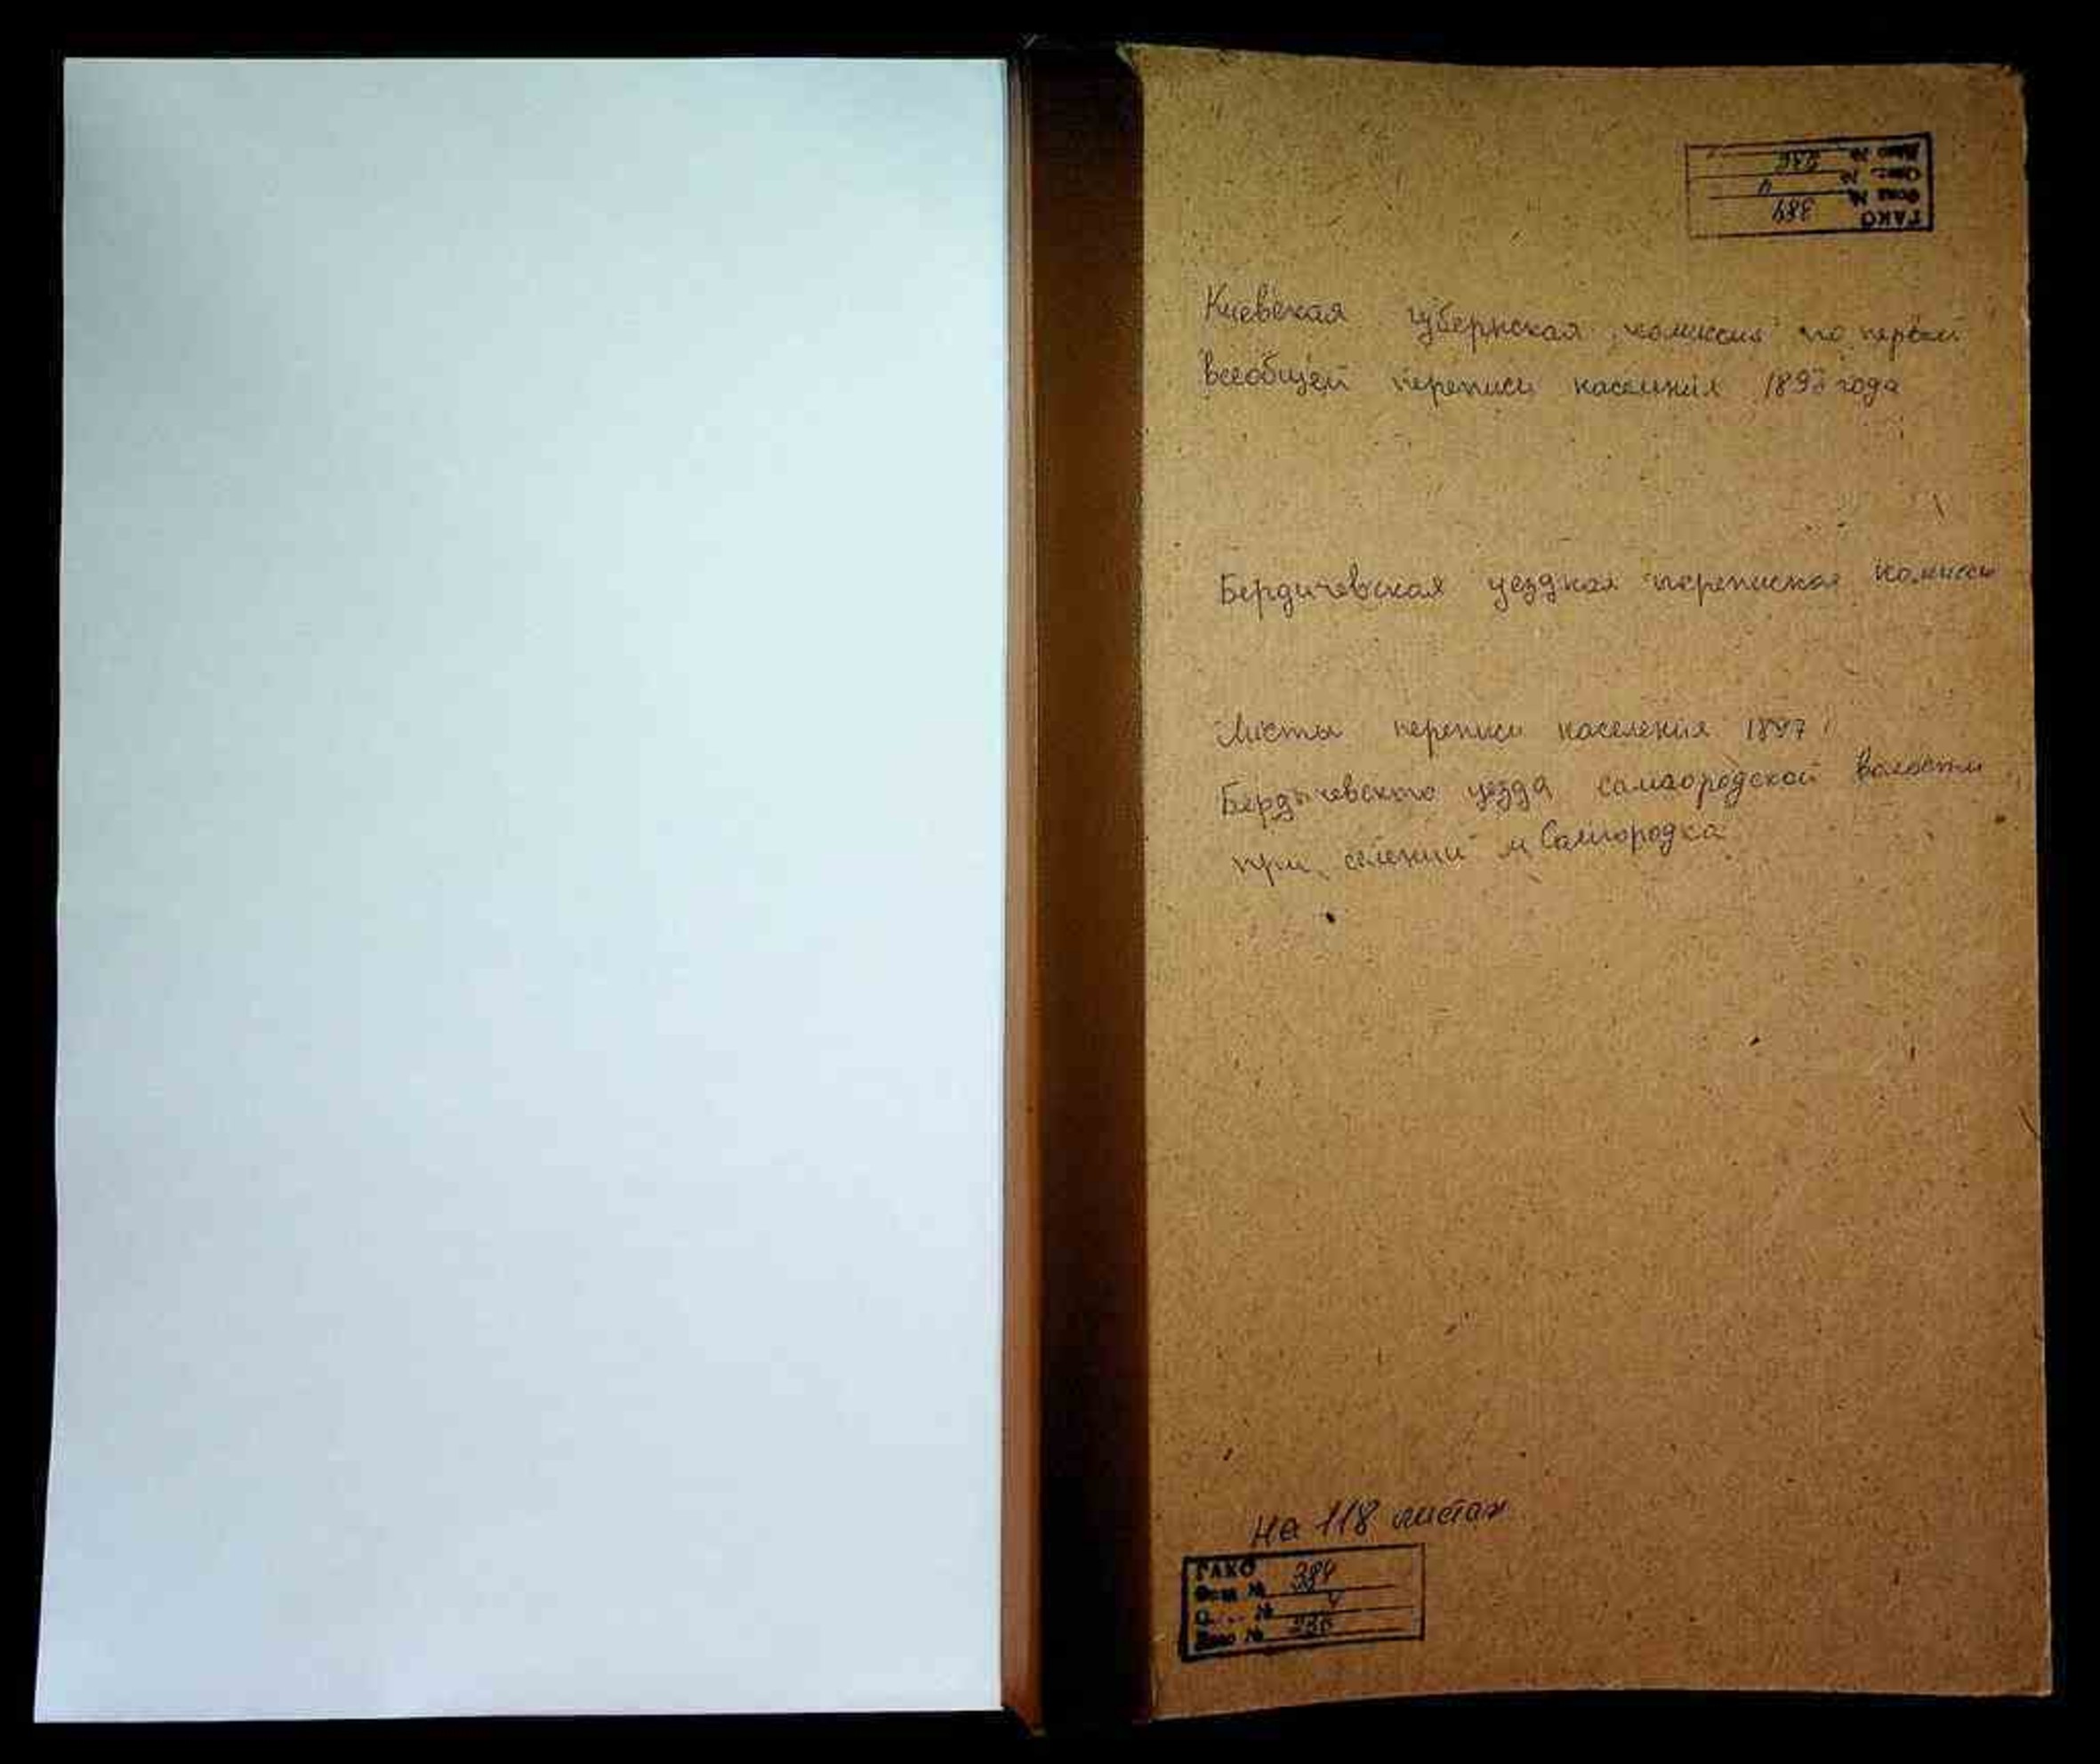 ГАКО
Фонд № 384
Опис № 4
Дело № 236
Киевская губернская комиссия по первой
всеобщей переписи населения 1897 года
Бердичевская уездная переписная комисси
Листы переписи населения 1897 г
Бердычевского уезда самгородской волости
при селении м Самгородка
На 118 листах
ГАКО
Фонд № 384
О № 4
Дело № 236